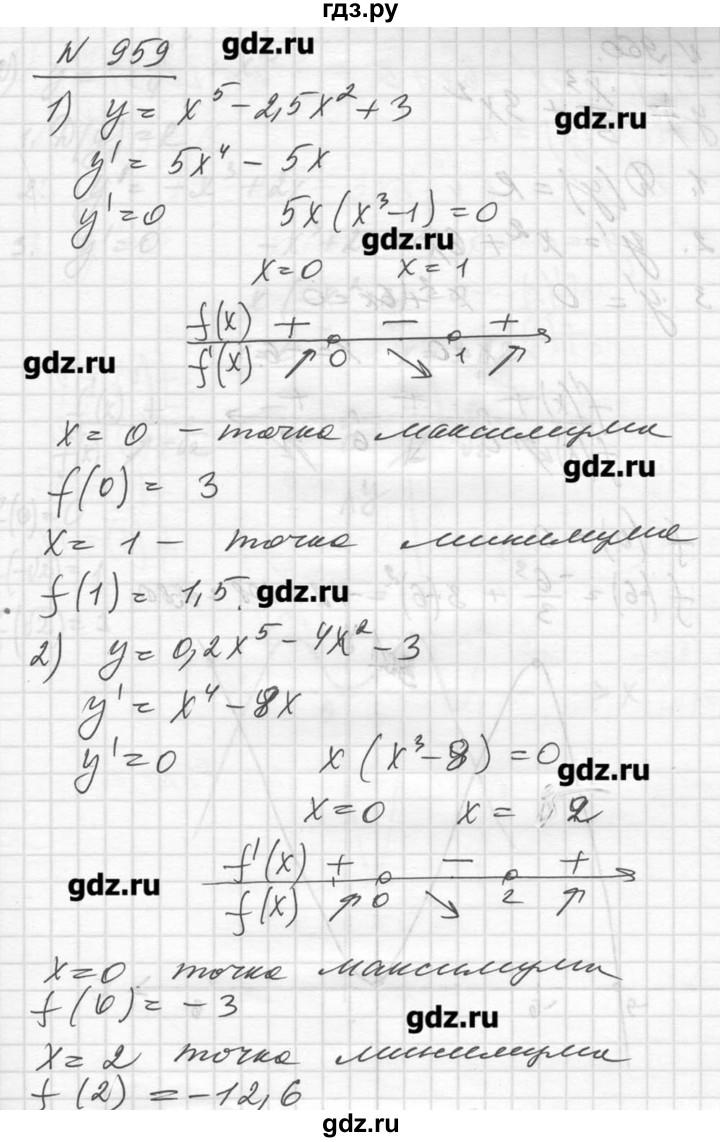 гдз.ру
N 959 gdz.ru
1) y = x⁵ - 2,5x² + 3
gdz.ru
y' = 5x⁴ - 5x
y' = 0 5x(x³-1) = 0
gdz.ru
x=0 x=1
f(x) + - +
gdz.ru
f'(x) ↗ 0 ↘ 1 ↗
x = 0 - точка максимума
gdz.ru
f(0) = 3
x = 1 - точка минимума
f(1) = 1,5. gdz.ru
2) y = 0,2x⁵ - 4x² - 3
y' = x⁴ - 8x
y' = 0 x(x³-8) = 0
gdz.ru
x=0 x= 2
f'(x) + - +
gdz.ru
f(x) ↗ 0 ↘ 2 ↗
x=0 точка максимума
f(0) = -3
gdz.ru
x = 2 точка минимума
f(2) = -12,6
gdz.ru